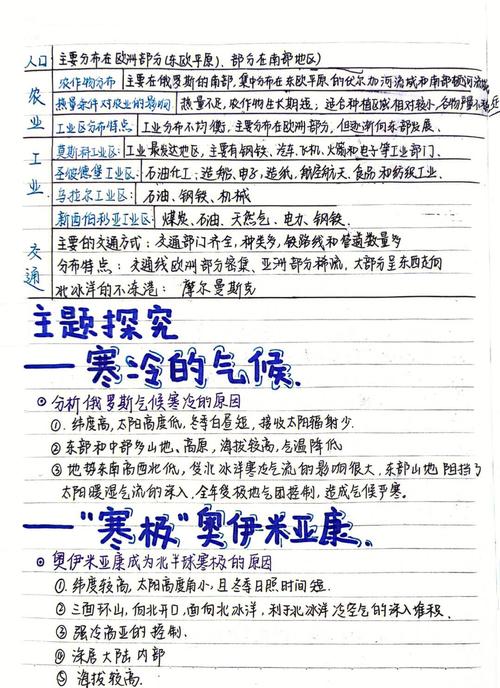 人口 主要分布在欧洲部分(东欧平原)、部分在南部地区)
农业 农作物分布 主要在俄罗斯的南部,集中分布在东欧平原的伏尔加河流域和南部顿河流域
热量条件对农业的影响 热量不足,农作物生长期短;适合种植区域相对较小,谷物产量不稳定
工业 工业区分布特点 工业分布不均衡,主要分布在欧洲部分,但逐渐向东部发展.
莫斯科工业区: 工业最发达地区,主要有钢铁、汽车、飞机、火箭和电子等工业部门.
圣彼德堡工业区: 石油化工;造船、电子、造纸、航空航天、食品和纺织工业.
乌拉尔工业区: 石油、钢铁、机械
新西伯利亚工业区: 煤炭、石油、天然气、电力、钢铁.
交通 主要的交通方式:交通部门齐全,种类多,铁路线和管道数量多
分布特点: 交通线欧洲部分密集、亚洲部分稀疏,大部分呈东西走向
北冰洋的不冻港: 摩尔曼斯克
主题探究
——寒冷的气候.
分析俄罗斯气候寒冷的原因
①.纬度高,太阳高度低,冬季白昼短,接收太阳辐射少.
②东部和中部多山地、高原,海拔较高,气温降低
③地势东南高西北低,受北冰洋寒冷气流的影响很大,东部山地阻挡了
太阳暖湿气流的深入,全年受极地气团控制,造成气候严寒.
——"寒极"奥伊米亚康.
奥伊米亚康成为北半球寒极的原因
①.纬度较高,太阳高度角小,且冬季日照时间短.
②三面环山,向北开口,面向北冰洋,利于北冰洋冷空气的深入堆积.
③强冷高亚的控制.
④深居大陆内部
⑤海拔较高.